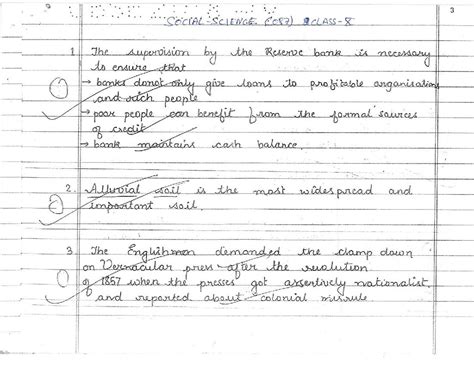 SOCIAL-SCIENCE (087) CLASS-X
1. The supervision by the Reserve bank is necessary
to ensure that
→ banks donot only give loans to profitable organisations
and rich people
→ poor people can benefit from the formal sources
of credit
→ bank maintains cash balance.
2. Alluvial soil is the most widespread and
important soil.
3. The Englishmen demanded the clamp down
on Vernacular press after the revolution
of 1857 when the presses got assertively nationalist.
and reported about colonial misrule